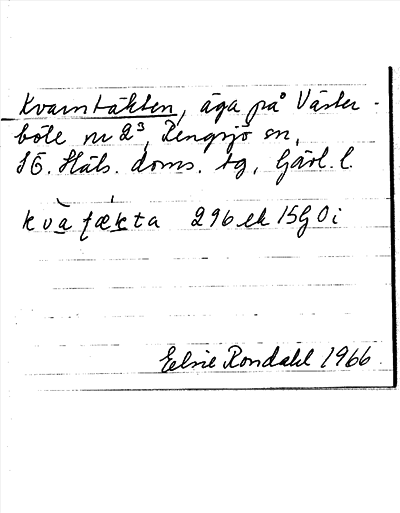 Kvarntäkten, äga på Väster-
böle nr 2³, Rengsjö sn,
SÖ. Häls. doms. tg, Gävl. l.
kvàn tækta 296 ek 15G 0i
Elsie Rondahl 1966.